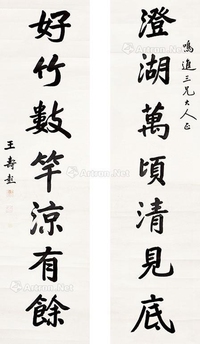 鳴進三兄大人正
澄湖萬頃清見底
好竹數竿涼有餘
王壽彭